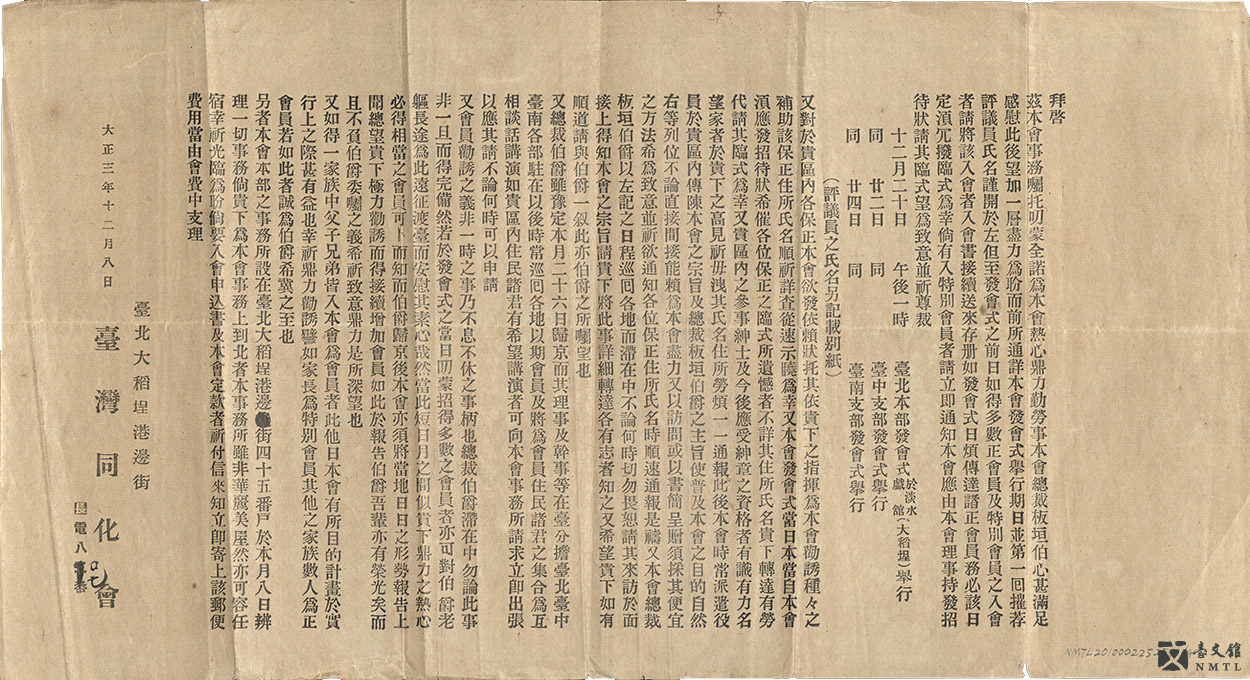 拜啓
茲本會事務囑托叨蒙全諾爲本會熱心鼎力勤勞事本會總裁板垣伯心甚滿足
感慰此後望加一層盡力爲盼而前所通詳本會發會式擧行期日並第一回推荐
評議員氏名謹開於左但至發會式之前日如得多數正會員及特別會員之入會
者請將該入會者入會書接續送來存册如發會式日煩傳達諸正會員務必該日
定須冗撥臨式爲幸倘有入特別會員者請立即通知本會應由本會理事持發招
待狀請其臨式望爲致意並祈尊裁
十二月二十日 午後一時 臺北本部發會式於淡水戲舘(大稻埕)舉行
同 廿二日 同 臺中支部發會式擧行
同 廿四日 同 臺南支部發會式擧行
(評議員之氏名另記載別紙)
又對於貴區內各保正本會欲發依賴狀托其依貴下之指揮爲本會勸誘種々之
補助該保正住所氏名順祈詳査從速示曉爲幸又本會發會式當日本當自本會
須應發招待狀希催各位保正之臨式所遺憾者不詳其住所氏名貴下轉達有勞
代請其臨式爲幸又貴區內之參事紳士及今後應受紳章之資格者有識有力名
望家者於貴下之高見祈毋洩其氏名住所勞煩一一通報此後本會時常派遣役
員於貴區內傳陳本會之宗旨及總裁板垣伯爵之主旨使普及本會之目的自然
右等列位不論直接間接能賴爲本會盡力又以訪問或以書簡呈贈須採其便宜
之方法希爲致意並祈欲通知各位保正住所氏名時順速通報是禱又本會總裁
板垣伯爵以左記之日程巡回各地而滯在中不論何時切勿畏恕請其來訪於面
接上得知本會之宗旨請貴下將此事詳細轉達各有志者知之又希望貴下如有
順道請與伯爵一叙此亦伯爵之所囑望也
又總裁伯爵雖豫定本月二十六日歸京而其理事及幹事等在臺分擔臺北臺中
臺南各部駐在以後時常巡回各地以期會員及將爲會員住民諸君之集合爲互
相談話講演如貴區內住民諸君有希望講演者可向本會事務所請求立卽出張
以應其請不論何時可以申請
又會員勸誘之義非一時之事乃不息不休之事柄也總裁伯爵滯在中勿論此事
非一旦而得完備然若於發會式之當日叨蒙招得多數之會員者亦可對伯爵老
軀長途爲此遠征渡臺而安慰其素心哉然當此短日月之間似貴下鼎力之熱心
必得相當之會員可卜而知而伯爵歸京後本會亦須將當地日日之形勢報告上
聞總望貴下極力勸誘而得接續增加會員如此於報告伯爵吾輩亦有榮光矣而
且不負伯爵委囑之義希祈致意鼎力是所深望也
又如得一家族中父子兄弟皆入本會爲會員者此他日本會有所目的計畫於實
行上之際甚有益也幸祈鼎力勸誘譬如家長爲特別會員其他之家族數人爲正
會員若如此者誠爲伯爵希冀之至也
另者本會本部之事務所設在臺北大稻埕港邊街四十五番戶於本月八日辨
理一切事務倘貴下爲本會事務上到北者本事務所雖非華麗美屋然亦可容任
宿幸祈光臨爲盼倘要入會申込書及本會定款者祈付信來知立卽寄上該郵便
費用當由會費中支理
大正三年十二月八日
臺北大稻埕港邊街
臺灣同化會
電八番
NMTL201000225
臺文館
NMTL